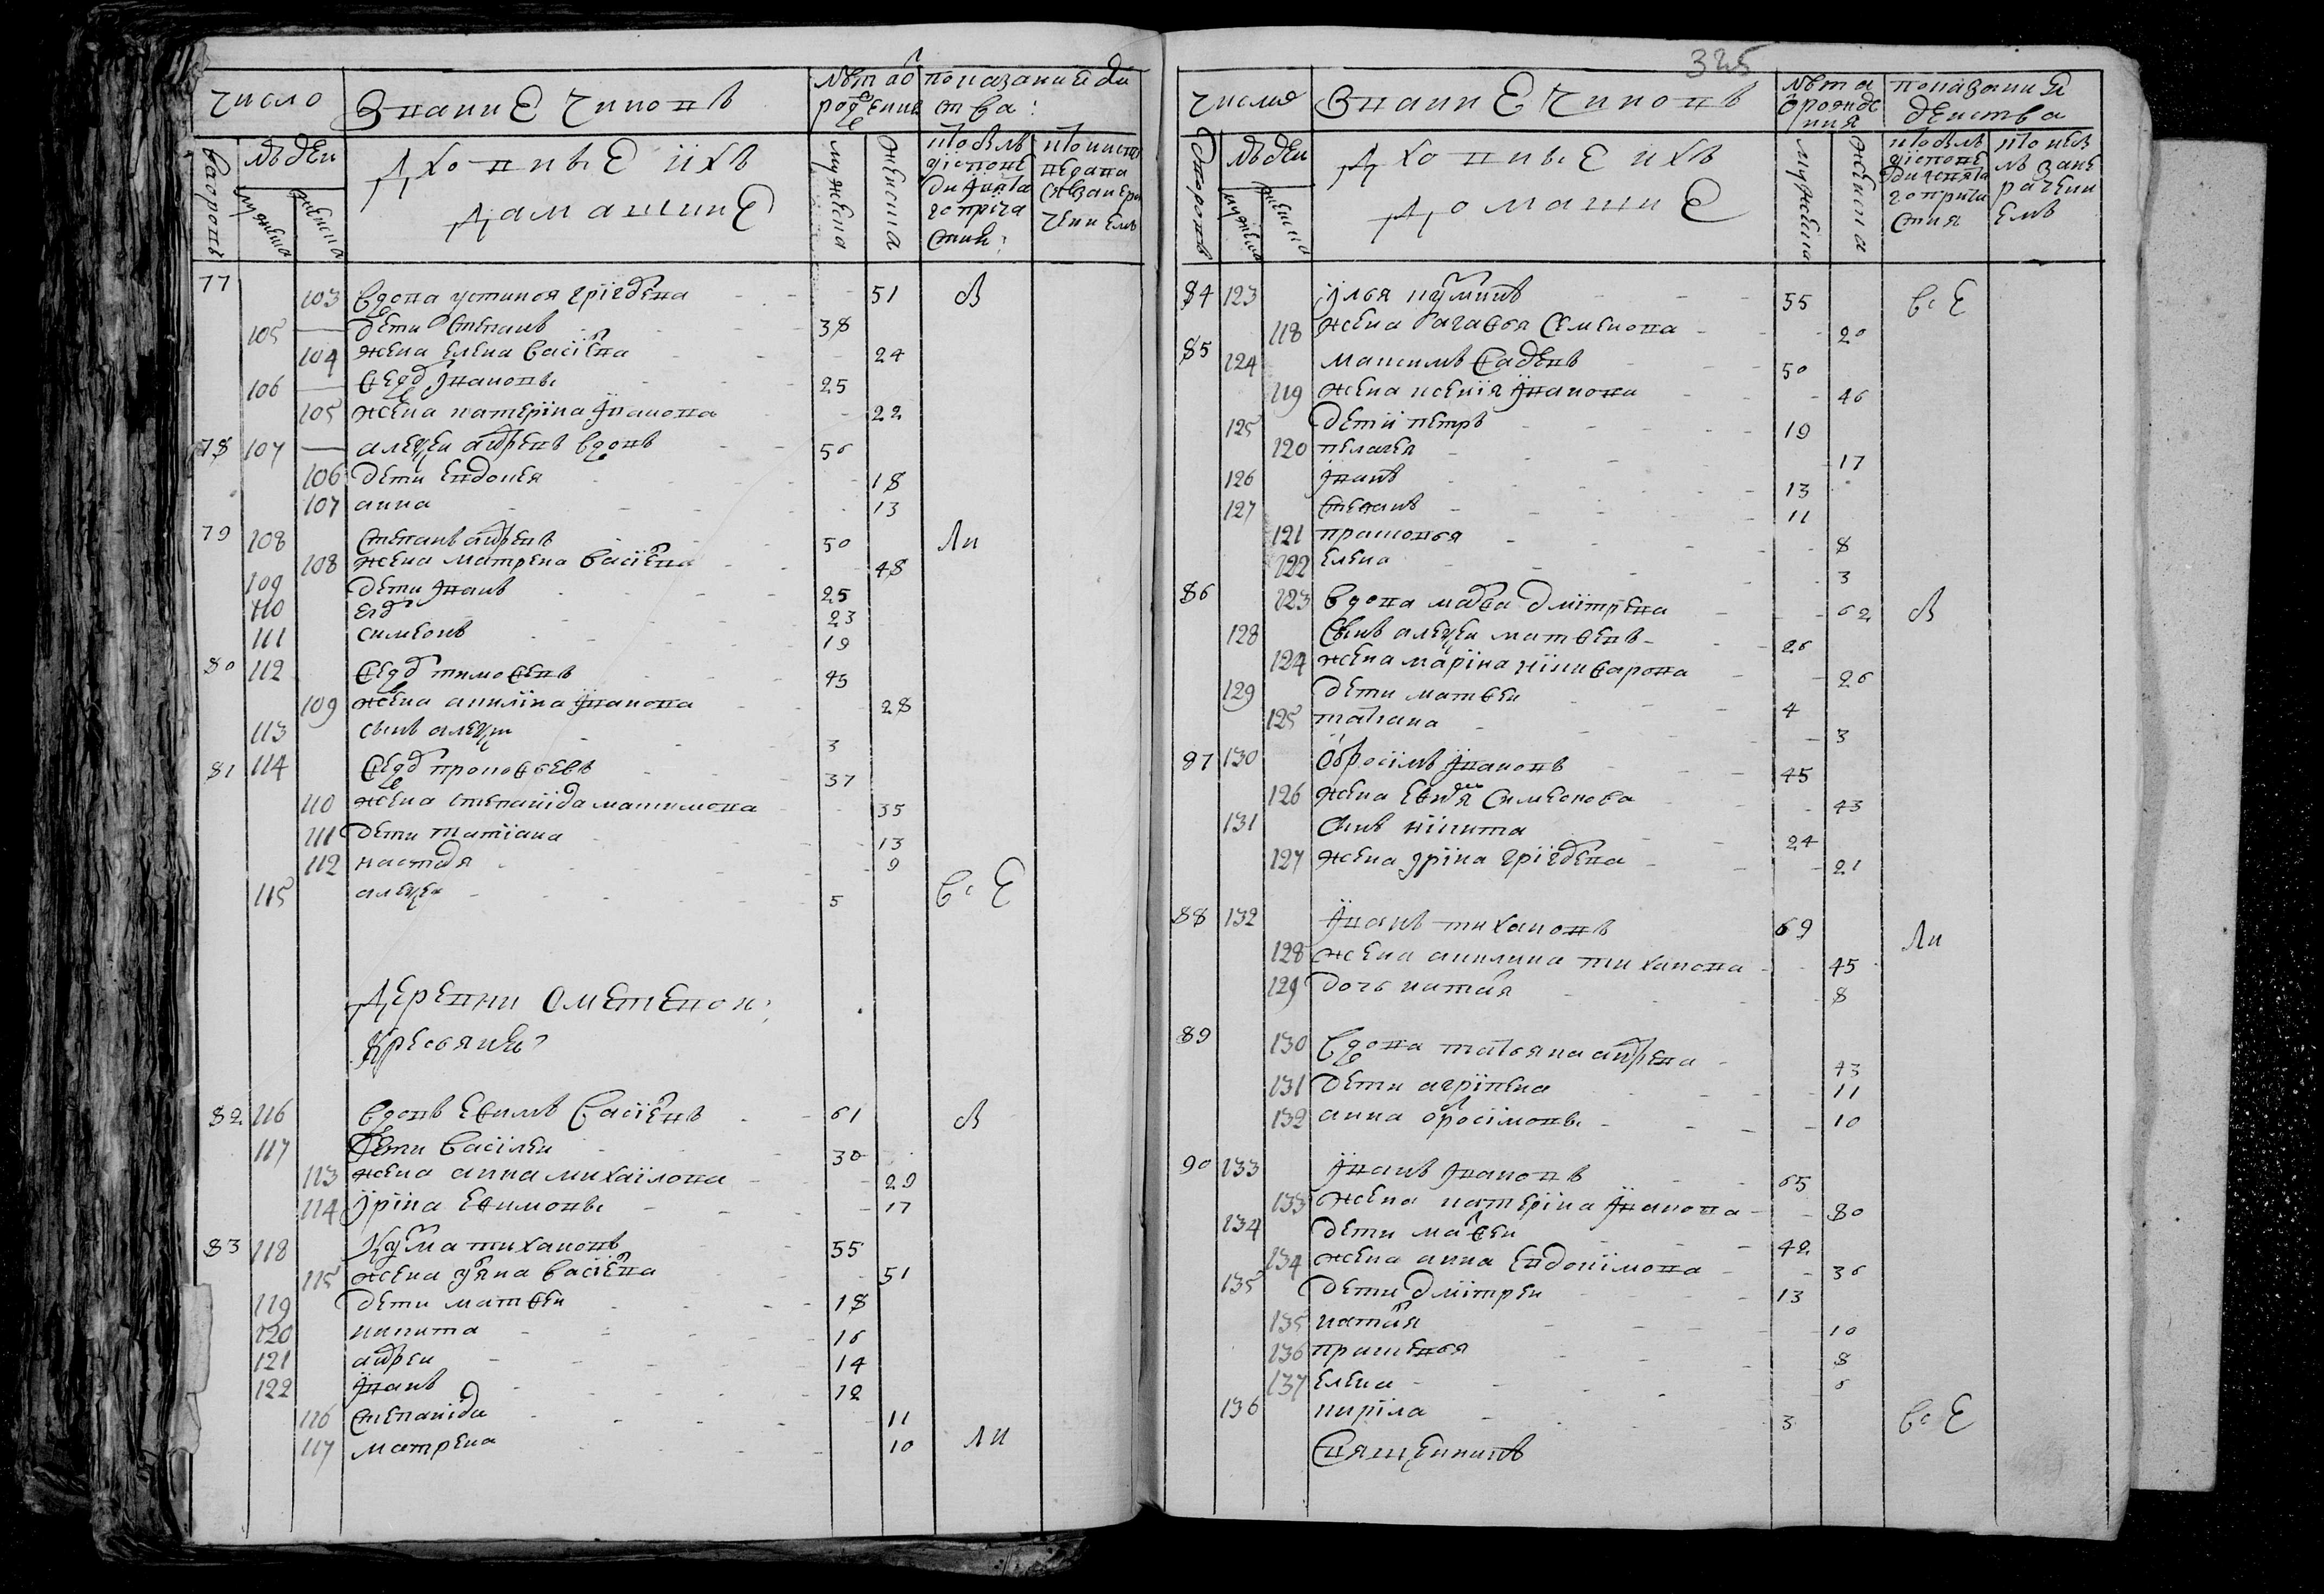 325
число
Звание чиновъ
Лѣта о рожденïи
показание дѣиства:
дворовъ
людеи
мужеска
женска
духовные ихъ
домашние
мужеска
женска
77 103 вдова устиня грïгорева 51 В
105 дети степанъ 38
104 жена елена васïлева 24
106 ѳедоръ ïвановъ 25
105 жена катерïна ïванова 22
78 107 алеѯеи андреевъ вдовъ 56
106 дети евдокея 18
107 анна 13
79 108 степанъ андреевъ 50 ли
108 жена матрена васïлева 48
109 дети ïванъ 25
110 егоръ 23
111 симеонъ 19
80 112 ѳедоръ тимоѳеевъ 45
109 жена акилïна ïванова 28
113 сынъ алеѯеи 3
81 114 ѳедоръ прокоѳьевъ 37
110 жена степанïда максимова 35
111 дети татïана 13
112 настася 9
115 алеѯеи 5 все
деревни сметевои:
крестьянъ
82 116 вдовъ еѳимъ васïлевъ 61 В
117 дети васïлеи 30
113 жена анна михаïлова 29
114 ïрïна еѳимовы 17
83 118 кузма тихановъ 55
115 жена уляна васïлева 51
119 дети матѳеи 18
120 никита 16
121 андреи 14
122 ïванъ 12
116 степанïда 11
117 матрена 10 ли
число
Звание чиновъ
Лѣта о рождения
показание деиства
дворовъ
людеи
мужеска
женска
духовные ихъ
домашние
мужеска
женска
84 123 ïлья кузминъ 55 все
118 жена агаѳья семенова 20
85 124 максимъ ѳадеевъ 50
119 жена ксенïя ïванова 46
125 дети петръ 19
120 пелагея 17
126 ïванъ 13
127 степанъ 11
121 прасковья 8
122 елена 3
86 123 вдова марѳа дмïтрева 62 В
128 сынъ алеѯеи матѳеевъ 26
124 жена марïна никиѳарова 26
129 дети матѳеи 4
125 татïана 3
87 130 обросïмъ ïвановъ 45
126 жена симеонова 43
131 сынъ никита 24
127 жена ïрïна грïгорева 21
88 132 ïванъ тихановъ 69 ли
128 жена акилина тиханова 45
129 дочь наталя 8
89 130 вдова татьяна андреева 43
131 дети агрïпена 11
132 анна обросïмовы 10
90 133 ïванъ ïвановъ 65
133 жена катерïна ïванова 80
134 дети матѳеи 42
134 жена анна евдокïмова 36
135 дети дмïтреи 13
135 наталя 10
136 прасковья 8
137 елена 6
136 кирïла 3 все
священникъ